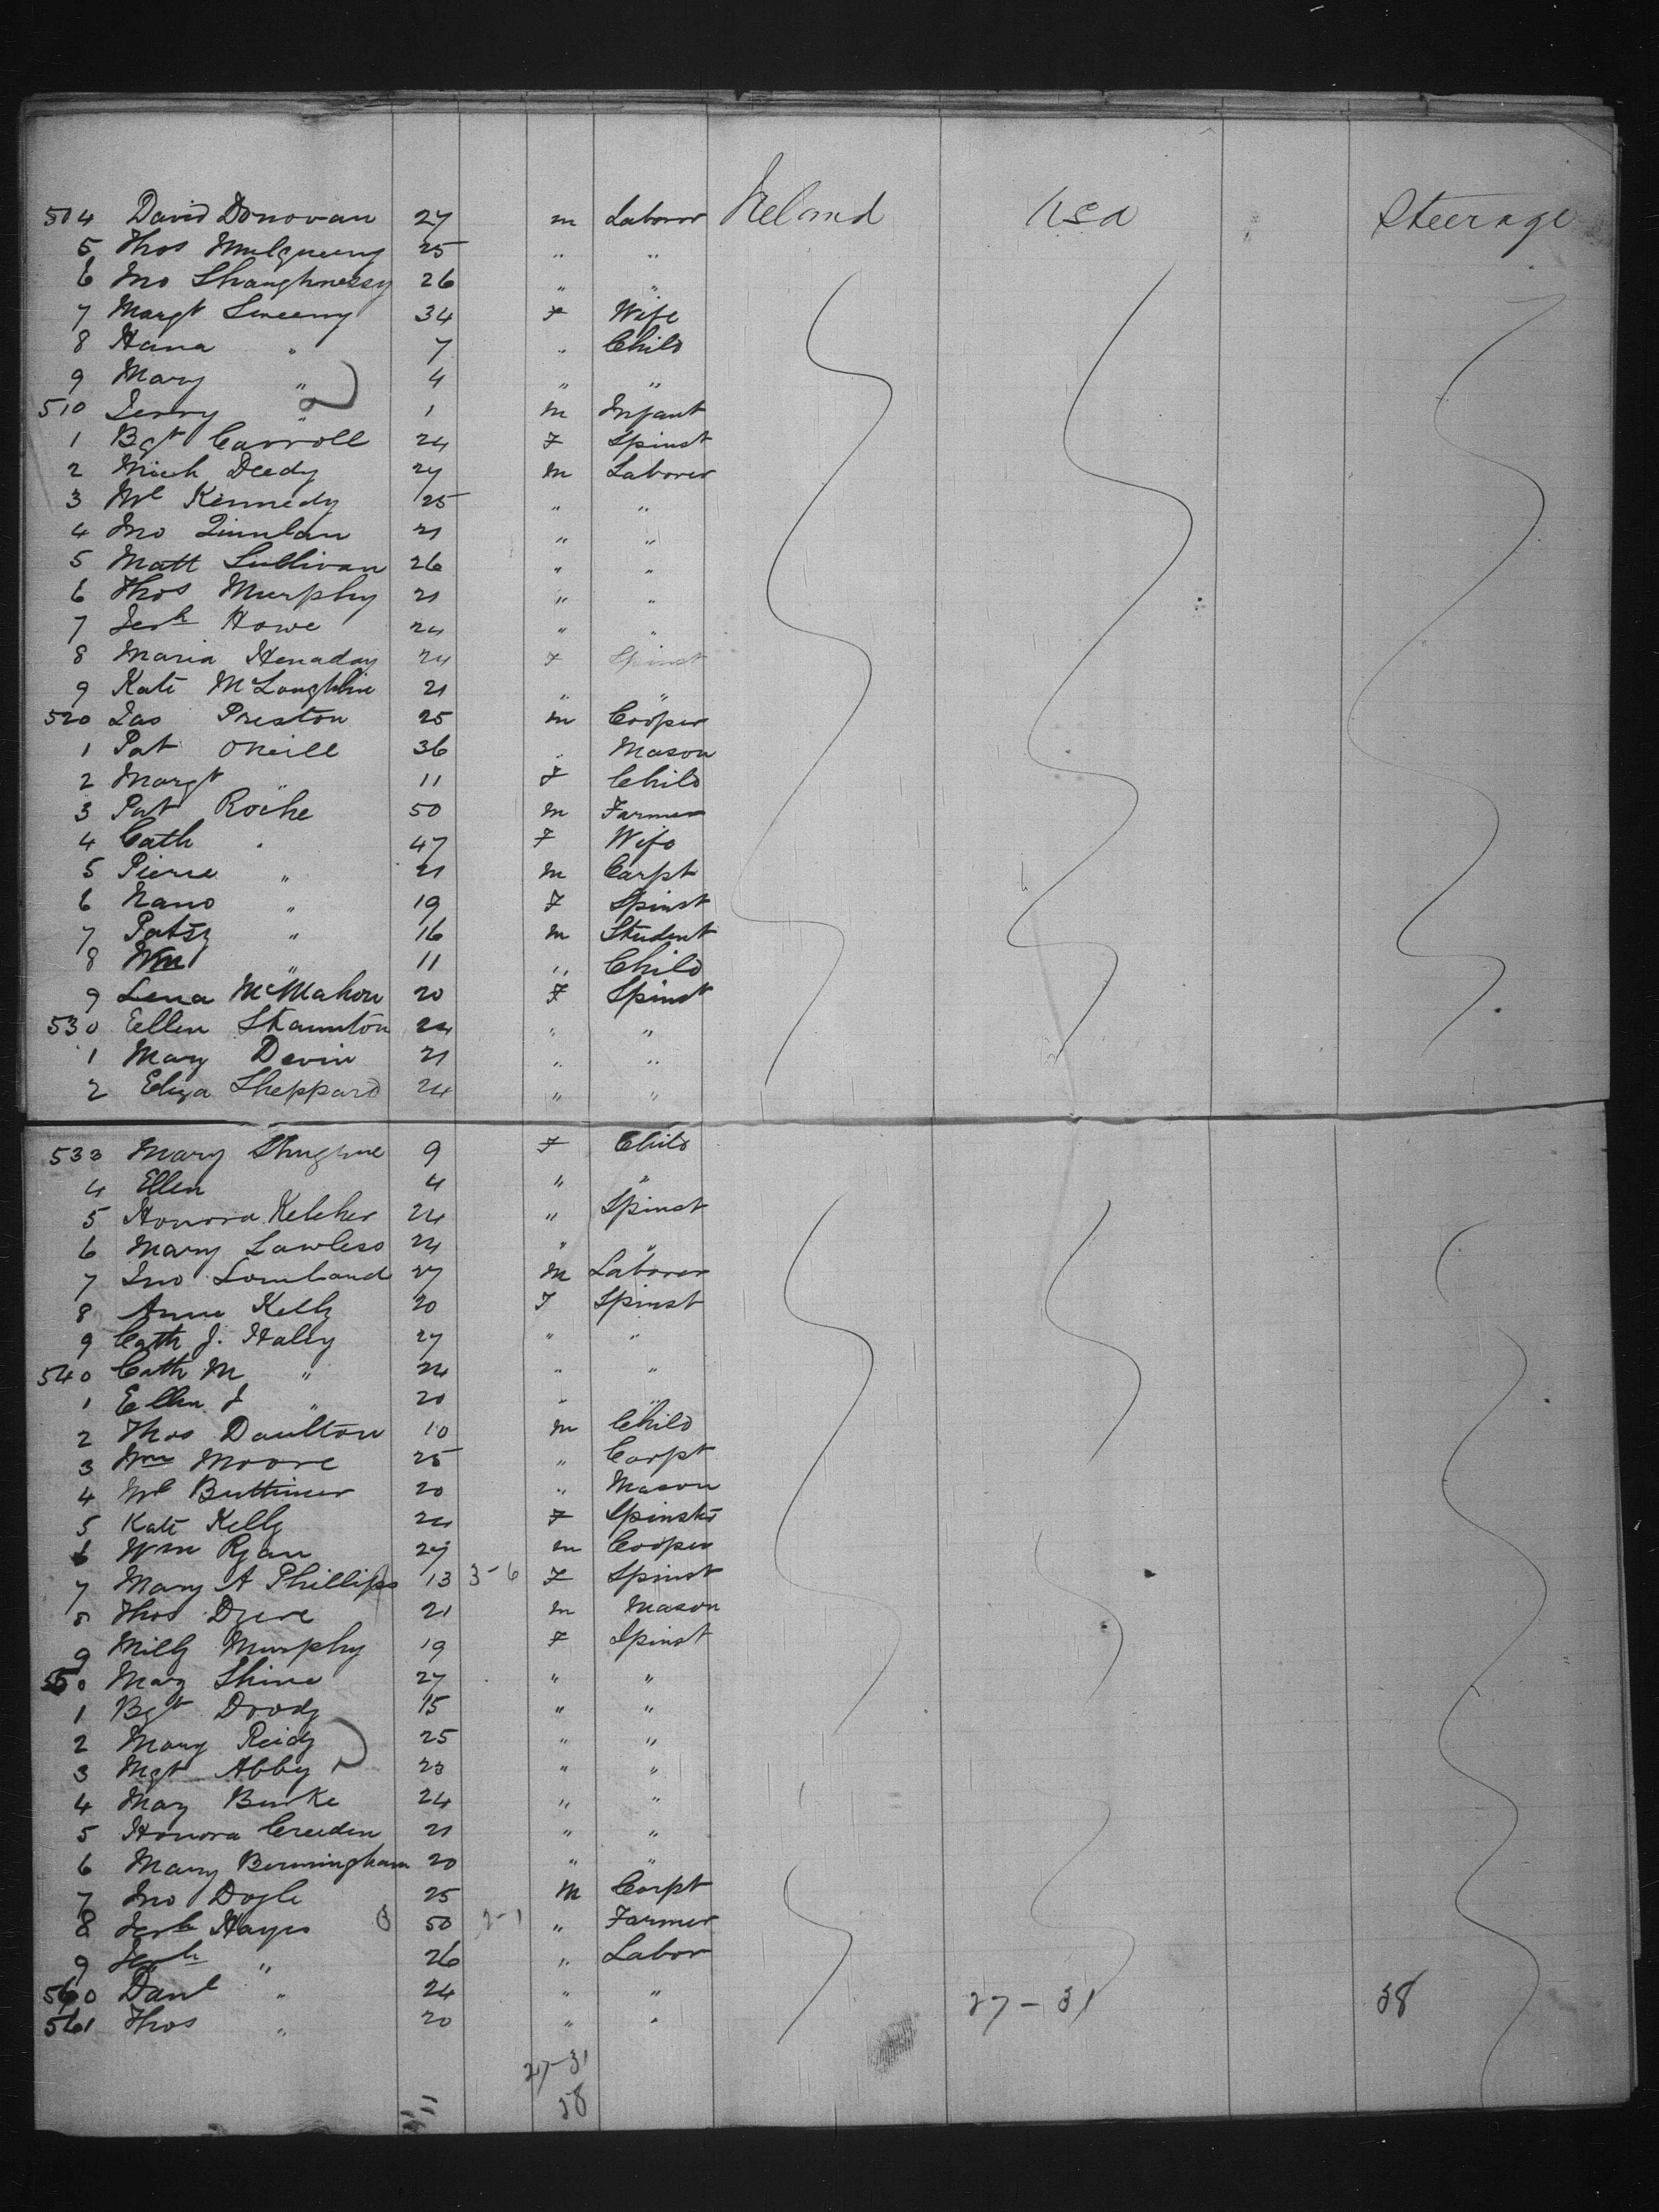 504 David Donovan 27 m Laborer Ireland USA Steerage
5 Thos Mulqueeny 25 " "
6 Jno Shaughnessy 26 " "
7 Margt Sweeny 34 F Wife
8 Hana " 7 " Child
9 Mary " 4 " "
510 Jerry " 1 m Infant
1 Bgt Carroll 24 F Spinst
2 Mich Deedy 27 m Laborer
3 Ml Kennedy 25 " "
4 Jno Quinlan 21 " "
5 Matt Sullivan 26 " "
6 Thos Murphy 21 " "
7 Jerh Howe 24 " "
8 Maria Henaday 24 F Spinst
9 Kate McLoughlin 21 " "
520 Jas Preston 25 m Cooper
1 Pat ONeill 36 " Mason
2 Margt " 11 F Child
3 Pat Roche 50 m Farmer
4 Cath " 47 F Wife
5 Pierce " 21 m Carpt
6 Nano " 19 F Spinst
7 Patsy " 16 m Student
8 Wm " 11 " Child
9 Lena McMahon 20 F Spinst
530 Ellen Staunton 24 " "
1 Mary Devin 21 " "
2 Eliza Sheppard 24 " "
533 Mary 9 F Child
4 Ellen 4 " "
5 Honora Keleher 24 " Spinst
6 Mary Lawless 24 " "
7 Jno Lombard 27 m Laborer
8 Anne Kelly 20 F Spinst
9 Cath J. Haley 27 " "
540 Cath M " 24 " "
1 Ellen J " 20 " "
2 Thos Daulton 10 m Child
3 Wm Moore 25 " Carpt
4 Ml Buttimer 20 " Mason
5 Kate Kelly 24 F Spinst
6 Wm Ryan 27 m Cooper
7 Mary A Phillips 13 3-6 F Spinst
8 Thos 21 m Mason
9 Milly Murphy 19 F Spinst
550 Mary Shine 27 " "
1 Bgt Doody 15 " "
2 Mary Reidy 25 " "
3 Mgt Abby 23 " "
4 Mary Burke 24 " "
5 Honora Creedon 21 " "
6 Mary Bermingham 20 " "
7 Jno Doyle 25 m Carpt
8 Jerh Hayes 50 2-1 " Farmer
9 Jerh " 26 " Labor
560 Danl " 24 " " 27-31 58
561 Thos " 20 " "
27-31
58